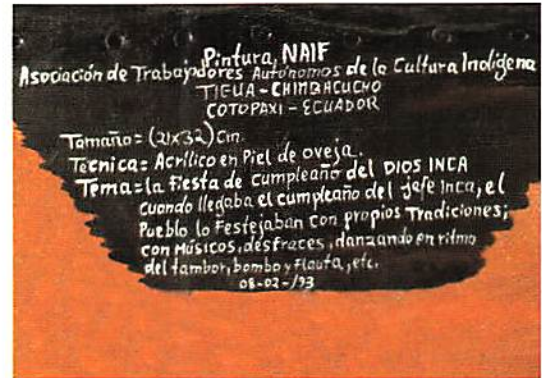 Pintura NAIF
Asociación de Trabajadores Autónomos de la Cultura Indígena
TIGUA-CHIMBACUCHO
COTOPAXI-ECUADOR
Tamaño=(21x32)cm.
Técnica=Acrílico en Piel de oveja.
Tema=la Fiesta de cumpleaño del DIOS INCA
Cuando llegaba el cumpleaño del jefe Inca, el
Pueblo lo Festejaban con propios Tradiciones;
con Músicos, desfraces, danzando en ritmo
del tambor, bombo y Flauta, etc.
08-02-/93